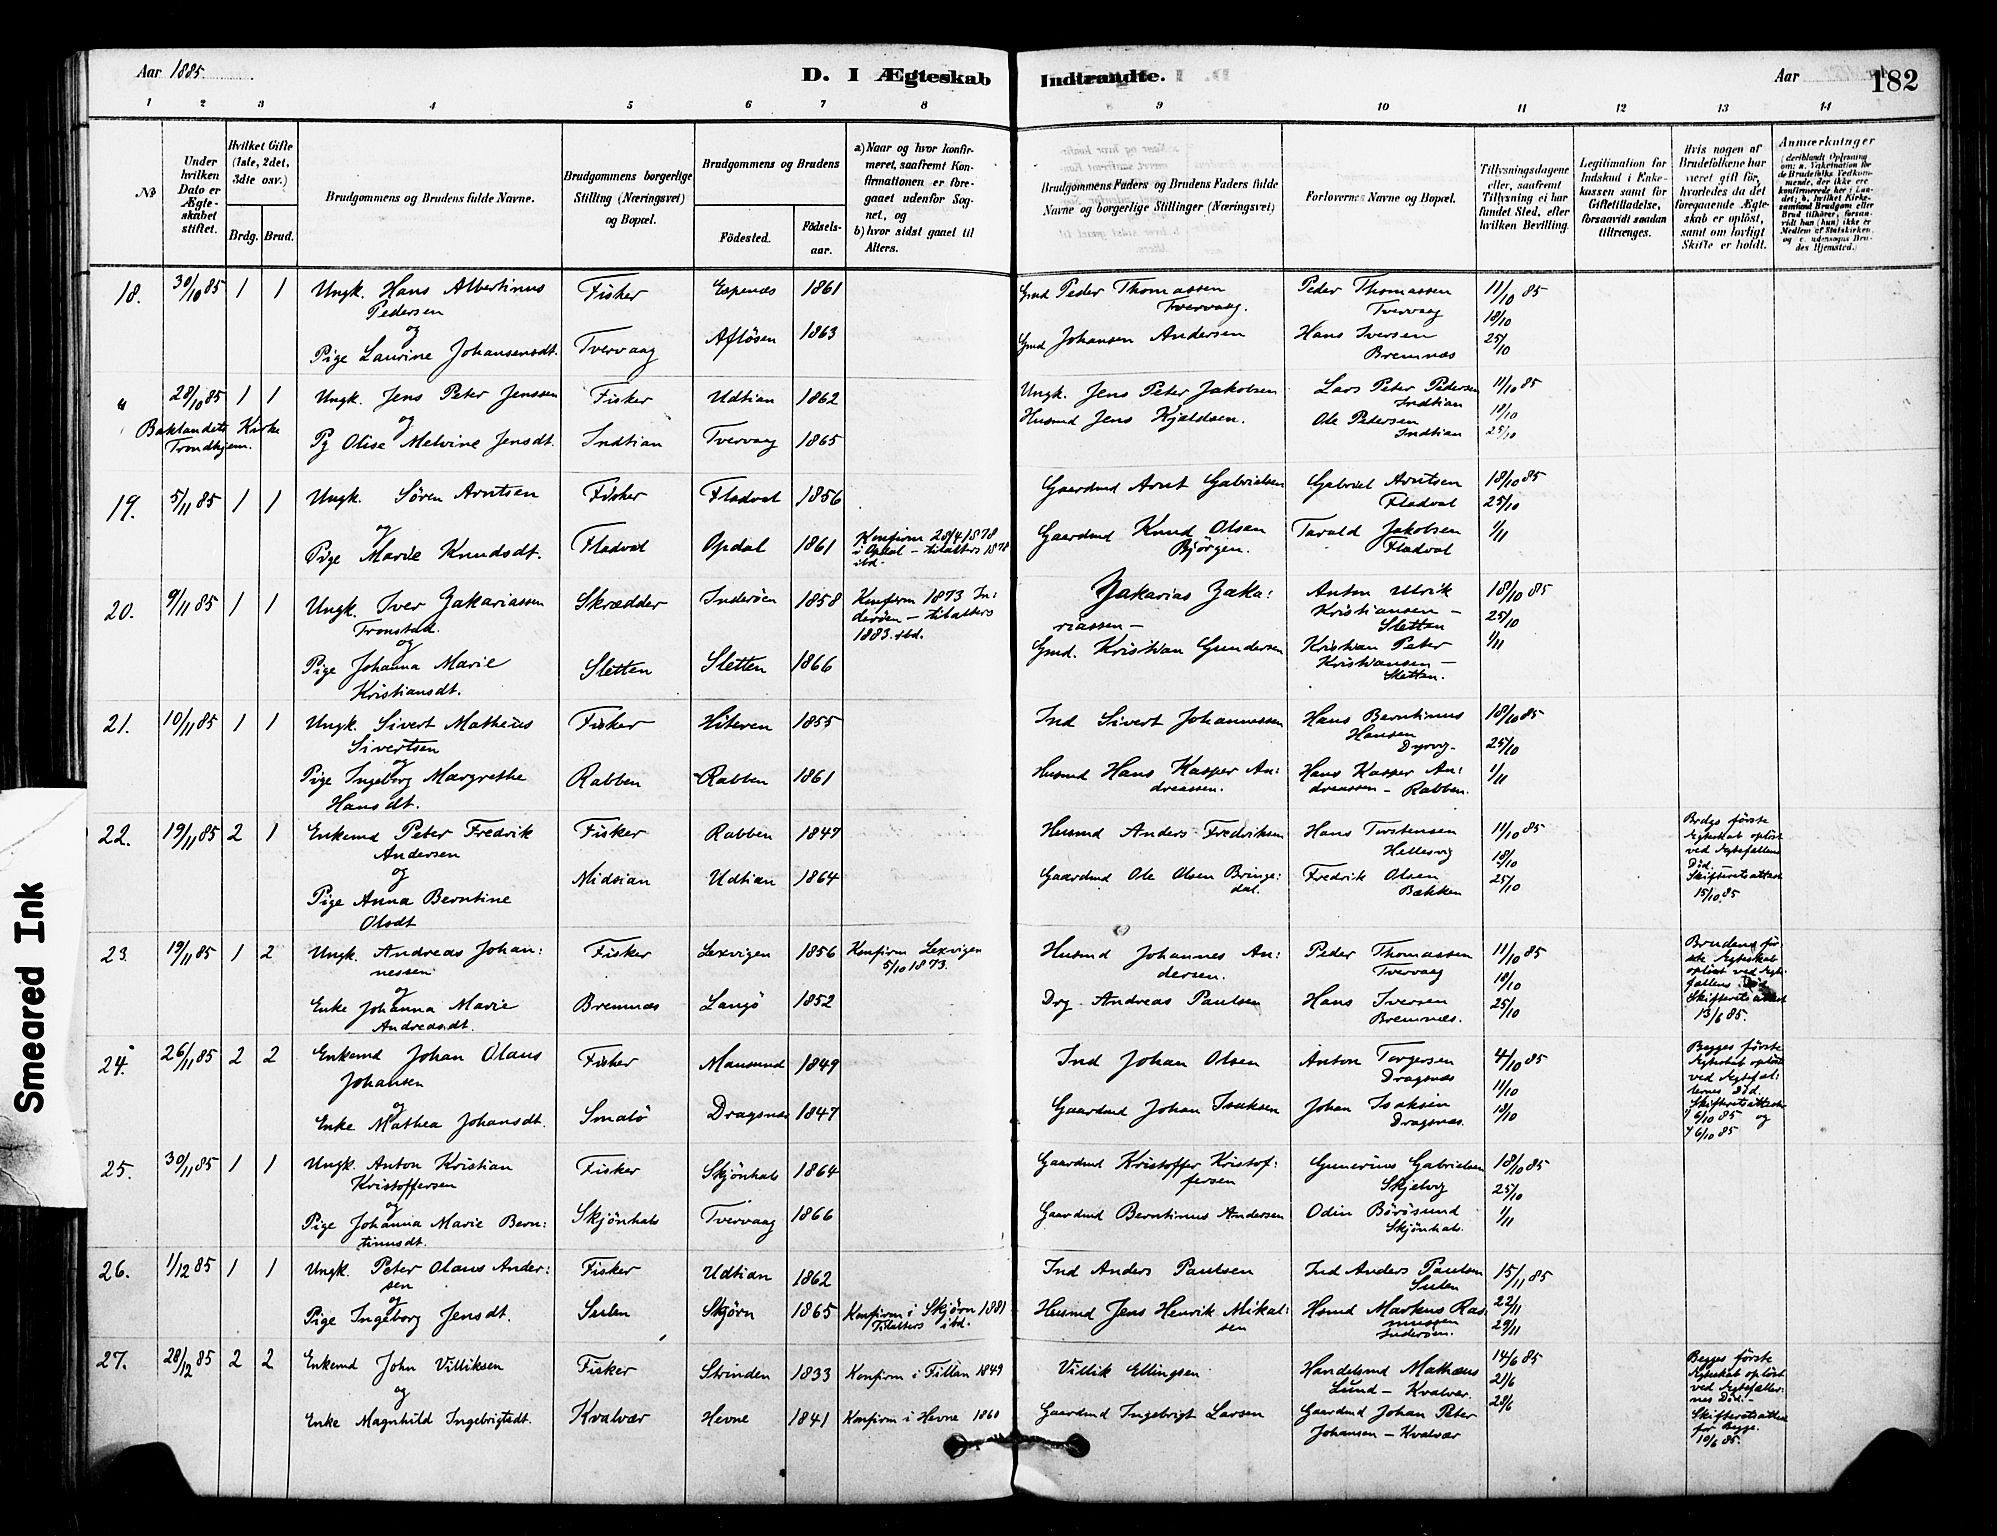 Aar 1885.
D. I Ægteskab Indtraadte.
Aar
182
1 2 3 4 5 6 7 8 9 10 11 12 13 14
№
Under hvilken Dato er Ægteskabet stiftet.
Hvilket Gifte (1ste, 2det, 3die osv.)
Brdg. Brud.
Brudgommens og Brudens fulde Navne.
Brudgommens borgerlige Stilling (Næringsvei) og Bopæl.
Brudgommens og Brudens
Födested.
Födselsaar.
a) Naar og hvor konfirmeret, saafremt Konfirmationen er foregaaet udenfor Sognet, og
b) hvor sidst gaaet til Alters.
Brudgommens Faders og Brudens Faders fulde Navne og borgerlige Stillinger (Næringsvei)
Forlovernes Navne og Bopæl.
Tillysningsdagene eller, saafremt Tillysning ei har fundet Sted, efter hvilken Bevilling.
Legitimation for Indskud i Enkekassen samt for Giftetilladelse, forsaavidt saadan tiltrænges.
Hvis nogen af Brudefolkene har været gift för, hvorledes da det foregaaende Ægteskab er oplöst, samt om lovligt Skifte er holdt.
Anmærkninger
18. 30/10 85 1 1 Ungk. Hans Albertinus Fisker Espenæs 1861 Gmd Peder Thomassen Peder Thomassen 11/10 85
Pedersen Tvervaag. Tvervaag 18/10
og
Pige Laurine Johansensdt. Tvervaag Aflösen 1863 Gmd Johansen Andersen Hans Iversen 25/10
Bremnæs
" 28/10 85 1 1 Ungk. Jens Peter Jenssen Fisker Udtian 1862 Ungk. Jens Peter Jakobsen Lars Peter Pedersen 11/10 85
Indtian
Baklandets Kirke og Husmd Jens Kjeldsen. Ole Pedersen 18/10
Trondhjem. Pg Olise Melvine Jensdt. Indtian Tvervaag 1865 Indtian 25/10
19. 5/11 85 1 1 Ungk. Sören Arntsen Fisker Fladval 1856 Gaardmd Arnt Gabrielsen Gabriel Arntsen 18/10 85
Fladval 25/10
og
Pige Marie Knudsdt. Fladval Opdal 1861 Konfirm 28/4 1878 Gaardmd Knud Olsen Tarald Jakobsen 1/11
i Opdal - tilalters 1878 Bjørgen. Fladval
ibd.
20. 9/11 85 1 1 Ungk. Iver Zakariassen Skrædder Inderöen 1858 Konfirm 1873 In: Zakarias Zaka: Anton Ulrik 18/10 85
Tronstad. deröen - tilalters riassen - Kristiansen - 25/10
og 1883. ibd. Sletten
Pige Johanna Marie Sletten Sletten 1866 Gmd. Kristian Gundersen Kristian Peter 1/11
Kristiansdt. Kristiansen - Sletten.
21. 10/11 85 1 1 Ungk. Sivert Matheus Fisker Hiteren 1855 Ind Sivert Johannessen Hans Berntinus 18/10 85
Sivertsen Hansen 25/10
og
Pige Ingeborg Margrethe Rabben Rabben 1861 Husmd Hans Kasper An: Hans Kasper An: 1/11
Hansdt. dreassen. dreassen - Rabben.
22. 19/11 85 2 1 Enkemd Peter Fredrik Fisker Rabben 1847 Husmd Anders Fredriksen Hans Torstensen 11/10 85 Brdgs förste
Andersen Hellesvig 18/10 Ægteskab oplöst
og ved Ægtefællens Död.-
Pige Anna Berntine Midtian Udtian 1864 Gaardmd Ole Olsen Bringe: Fredrik Olsen 25/10 Skifteretsattest
Olsdt dal. Bækken 15/10. 85
23. 19/11 85 1 2 Ungk. Andreas Johan: Fisker Lexvigen 1856 Konfirm Lexvigen Husmd Johannes An: Peder Thomassen 11/10 85 Brudens för:
nessen 5/10 1873. dersen. Tvervaag 18/10 ste Ægteskab
og oplöst ved Ægte:
Enke Johanna Marie Bremnæs Langö 1852 Andreas Paulsen Hans Iversen 25/10 fællens Död
Andreasdt. Bremnæs. Skifteretsattest 13/6 85.
24. 26/11 85 2 2 Enkemd Johan Olaus Fisker Mausund 1849 Ind Johan Olsen Anton Torgersen 4/10 85 Begges förste
Johansen Dragsnæs 11/10 Ægteskab oplöst
og ved Ægtefæl:
Enke Mathea Johansdt. Smalö Dragsnæs 1847 Gaardmd Johan Isaksen Johan Isaksen 18/10 lernes Död.
Dragsnæs. Skifteretsattester
6/10 85 og
6/10 85
25. 30/11 85 1 1 Ungk. Anton Kristian Fisker Skjönhals 1864 Gaardmd Kristoffer Kristof: Gunerius Gabrielsen 18/10 85
Kristoffersen fersen Skjelvig 25/10
og
Pige Johanna Marie Bern: Skjönhals Tvervaag 1866 Gaardmd Berntinus Andersen Odin Börösund 1/11
tinusdt. Skjönhals.
26. 1/12 85 1 1 Ungk. Peter Olaus Ander: Fisker Udtian 1862 Ind Anders Paulsen Ind Anders Paulsen 15/11 85
sen Sulen
og
Pige Ingeborg Jensdt. Sulen Skjörn 1865 Konfirm i Skjörn 1881 Husmd Jens Henrik Mikal: Hsmd Markus Ras: 22/11
Tilalters ibd. sen mussen 29/11
27. 28/12 85 2 2 Enkemd John Villiksen Fisker Strinden 1833 Konfirm i Fillan 1849 Villik Ellingsen Handelsmd Mathæus 14/6 85 Begges förste
Lund - Kvalvær. 21/6 Ægteskab oplöst
og ved Ægtefæller:
Enke Magnhild Ingebrigtsdt. Kvalvær Hevne 1841 Konfirm i Hevne 1860 Gaardmd Ingebrigt Larsen Gaardmd Johan Peter 28/6 nes Död.-
Johansen - Kvalvær Skifteretsattest
for Begge.
10/6 85.
Smeared Ink